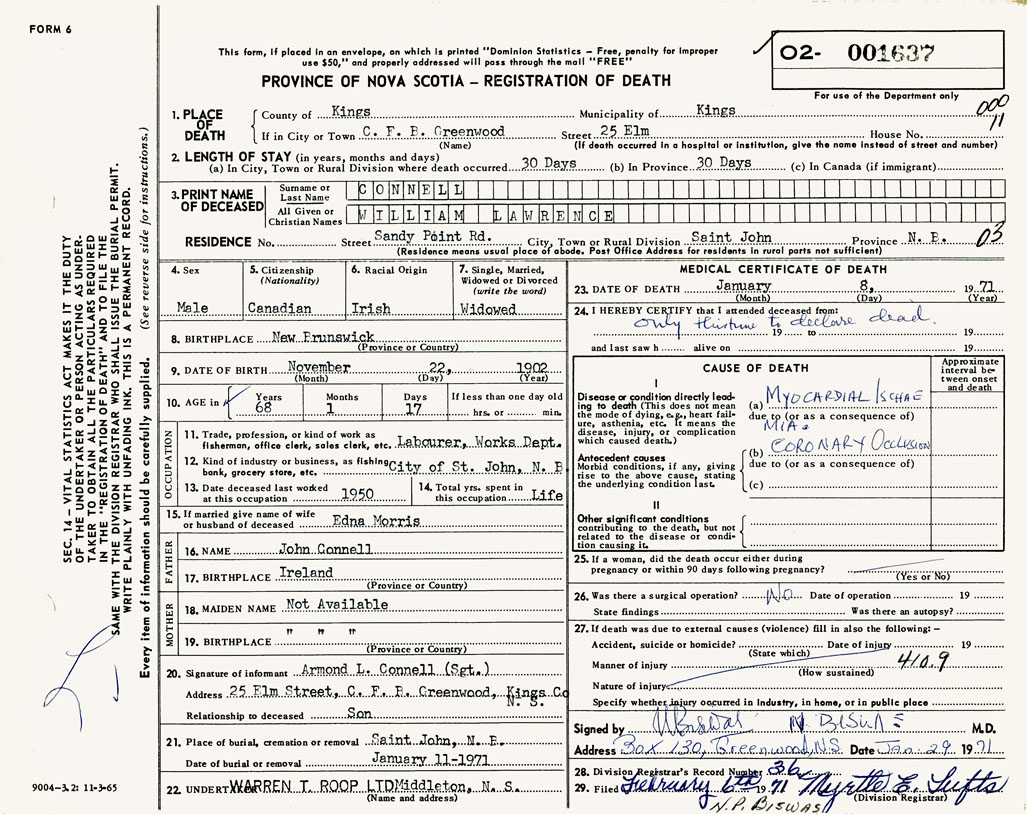 FORM 6
This form, if placed in an envelope, on which is printed "Dominion Statistics – Free, penalty for improper
use $50," and properly addressed will pass through the mail "FREE"
PROVINCE OF NOVA SCOTIA – REGISTRATION OF DEATH
02- 001637
For use of the Department only
000
11
1. PLACE OF DEATH
County of Kings Municipality of Kings
If in City or Town C. F. B. Greenwood Street 25 Elm House No.
(Name) (If death occurred in a hospital or institution, give the name instead of street and number)
2. LENGTH OF STAY (in years, months and days)
(a) In City, Town or Rural Division where death occurred 30 Days (b) In Province 30 Days (c) In Canada (if immigrant)
3. PRINT NAME OF DECEASED
Surname or Last Name CONNELL
All Given or Christian Names WILLIAM LAWRENCE
RESIDENCE No. Street Sandy Point Rd. City, Town or Rural Division Saint John Province N. B. 03
(Residence means usual place of abode. Post Office Address for residents in rural parts not sufficient)
4. Sex
Male
5. Citizenship
(Nationality)
Canadian
6. Racial Origin
Irish
7. Single, Married,
Widowed or Divorced
(write the word)
Widowed
8. BIRTHPLACE New Brunswick
(Province or Country)
9. DATE OF BIRTH November 22, 1902
(Month) (Day) (Year)
10. AGE in Years 68 Months 1 Days 17 If less than one day old
hrs. or min.
OCCUPATION
11. Trade, profession, or kind of work as
fisherman, office clerk, sales clerk, etc. Labourer, Works Dept.
12. Kind of industry or business, as fishing
bank, grocery store, etc. City of St. John, N. B
13. Date deceased last worked
at this occupation 1950
14. Total yrs. spent in
this occupation Life
15. If married give name of wife
or husband of deceased Edna Morris
FATHER
16. NAME John Connell
17. BIRTHPLACE Ireland
(Province or Country)
MOTHER
18. MAIDEN NAME Not Available
19. BIRTHPLACE " " "
(Province or Country)
20. Signature of informant Armond L. Connell (Sgt.)
Address 25 Elm Street, C. F. B. Greenwood, Kings Co
N. S.
Relationship to deceased Son
21. Place of burial, cremation or removal Saint John, N. B.
Date of burial or removal January 11-1971
22. UNDERT WARREN T. ROOP LTD Middleton, N. S.
(Name and address)
MEDICAL CERTIFICATE OF DEATH
23. DATE OF DEATH January 8, 1971
(Month) (Day) (Year)
24. I HEREBY CERTIFY that I attended deceased from:
only this time to declare dead.
19 to 19
and last saw h alive on 19
CAUSE OF DEATH
Approximate interval between onset and death
I
Disease or condition directly leading to death (This does not mean the mode of dying, e.g., heart failure, asthenia, etc. It means the disease, injury, or complication which caused death.)
(a) MYOCARDIAL ISCHAE
due to (or as a consequence of)
MIA:
Antecedent causes
Morbid conditions, if any, giving rise to the above cause, stating the underlying condition last.
(b) CORONARY OCCLUSION
due to (or as a consequence of)
(c)
II
Other significant conditions
contributing to the death, but not related to the disease or condition causing it.
25. If a woman, did the death occur either during
pregnancy or within 90 days following pregnancy?
(Yes or No)
26. Was there a surgical operation? NO Date of operation 19
State findings Was there an autopsy?
27. If death was due to external causes (violence) fill in also the following: –
Accident, suicide or homicide? Date of injury 19
(State which)
Manner of injury 410.9
(How sustained)
Nature of injury
Specify whether injury occurred in Industry, in home, or in public place
Signed by N Biswas N. BISWAS M.D.
Address Box 130, Greenwood, N.S. Date Jan. 29 1971
28. Division Registrar's Record Number 36
29. Filed February 6th 1971 Myrtle E. Tufts
(Division Registrar)
N.P. BISWAS
SEC. 14 – VITAL STATISTICS ACT MAKES IT THE DUTY
OF THE UNDERTAKER OR PERSON ACTING AS UNDER-
TAKER TO OBTAIN ALL THE PARTICULARS REQUIRED
IN THE "REGISTRATION OF DEATH" AND TO FILE THE
SAME WITH THE DIVISION REGISTRAR WHO SHALL ISSUE THE BURIAL PERMIT.
WRITE PLAINLY WITH UNFADING INK. THIS IS A PERMANENT RECORD.
Every item of information should be carefully supplied. (See reverse side for instructions.)
9004-3.2: 11-3-65